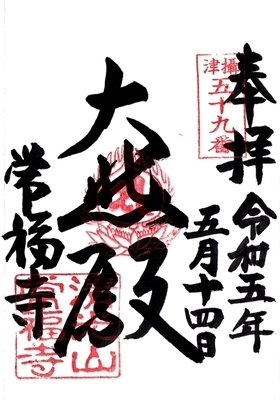 奉拝
令和五年
五月十四日
攝津
五十九番
大悲殿
常福寺
常福寺